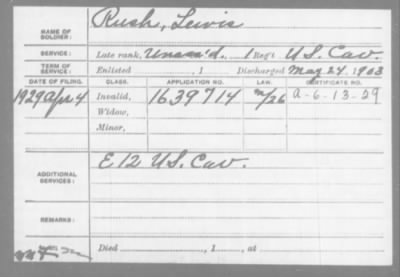 NAME OF SOLDIER: Rush, Lewis
SERVICE: Late rank, Unass'd, 1 Reg't U.S. Cav.
TERM OF SERVICE: Enlisted , 1 Discharged May 24, 1903
DATE OF FILING. CLASS. APPLICATION NO. LAW. CERTIFICATE NO.
1929 Apr 4 Invalid, 1639714 m/26 a-6-13-29
Widow,
Minor,
ADDITIONAL SERVICES: E 12 U.S. Cav.
REMARKS:
Died , 1 , at